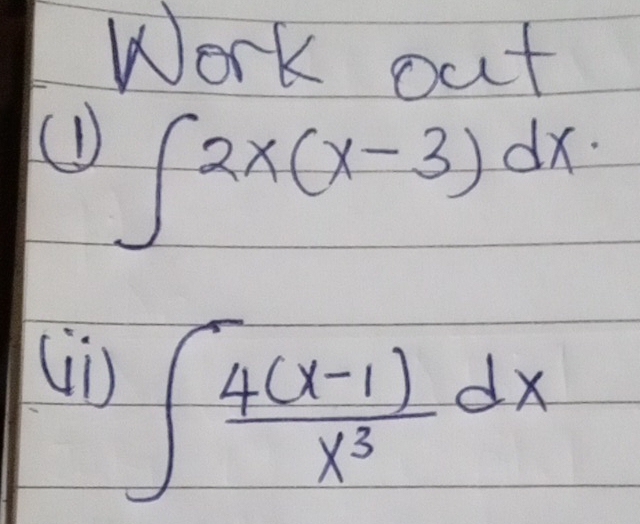 Work out
(i) ∫2x(x-3) dx.
(ii) ∫ 4(x-1)/x³ dx